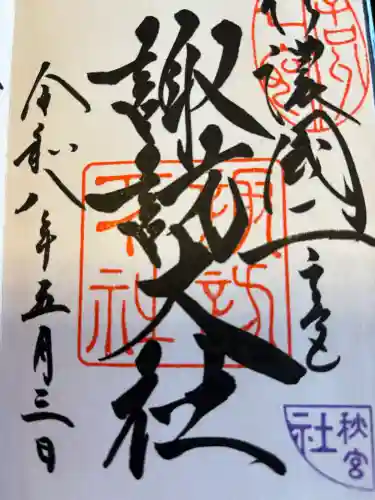 信濃國一之宮
諏訪大社
令和八年五月三日
諏訪
大社
秋宮
社